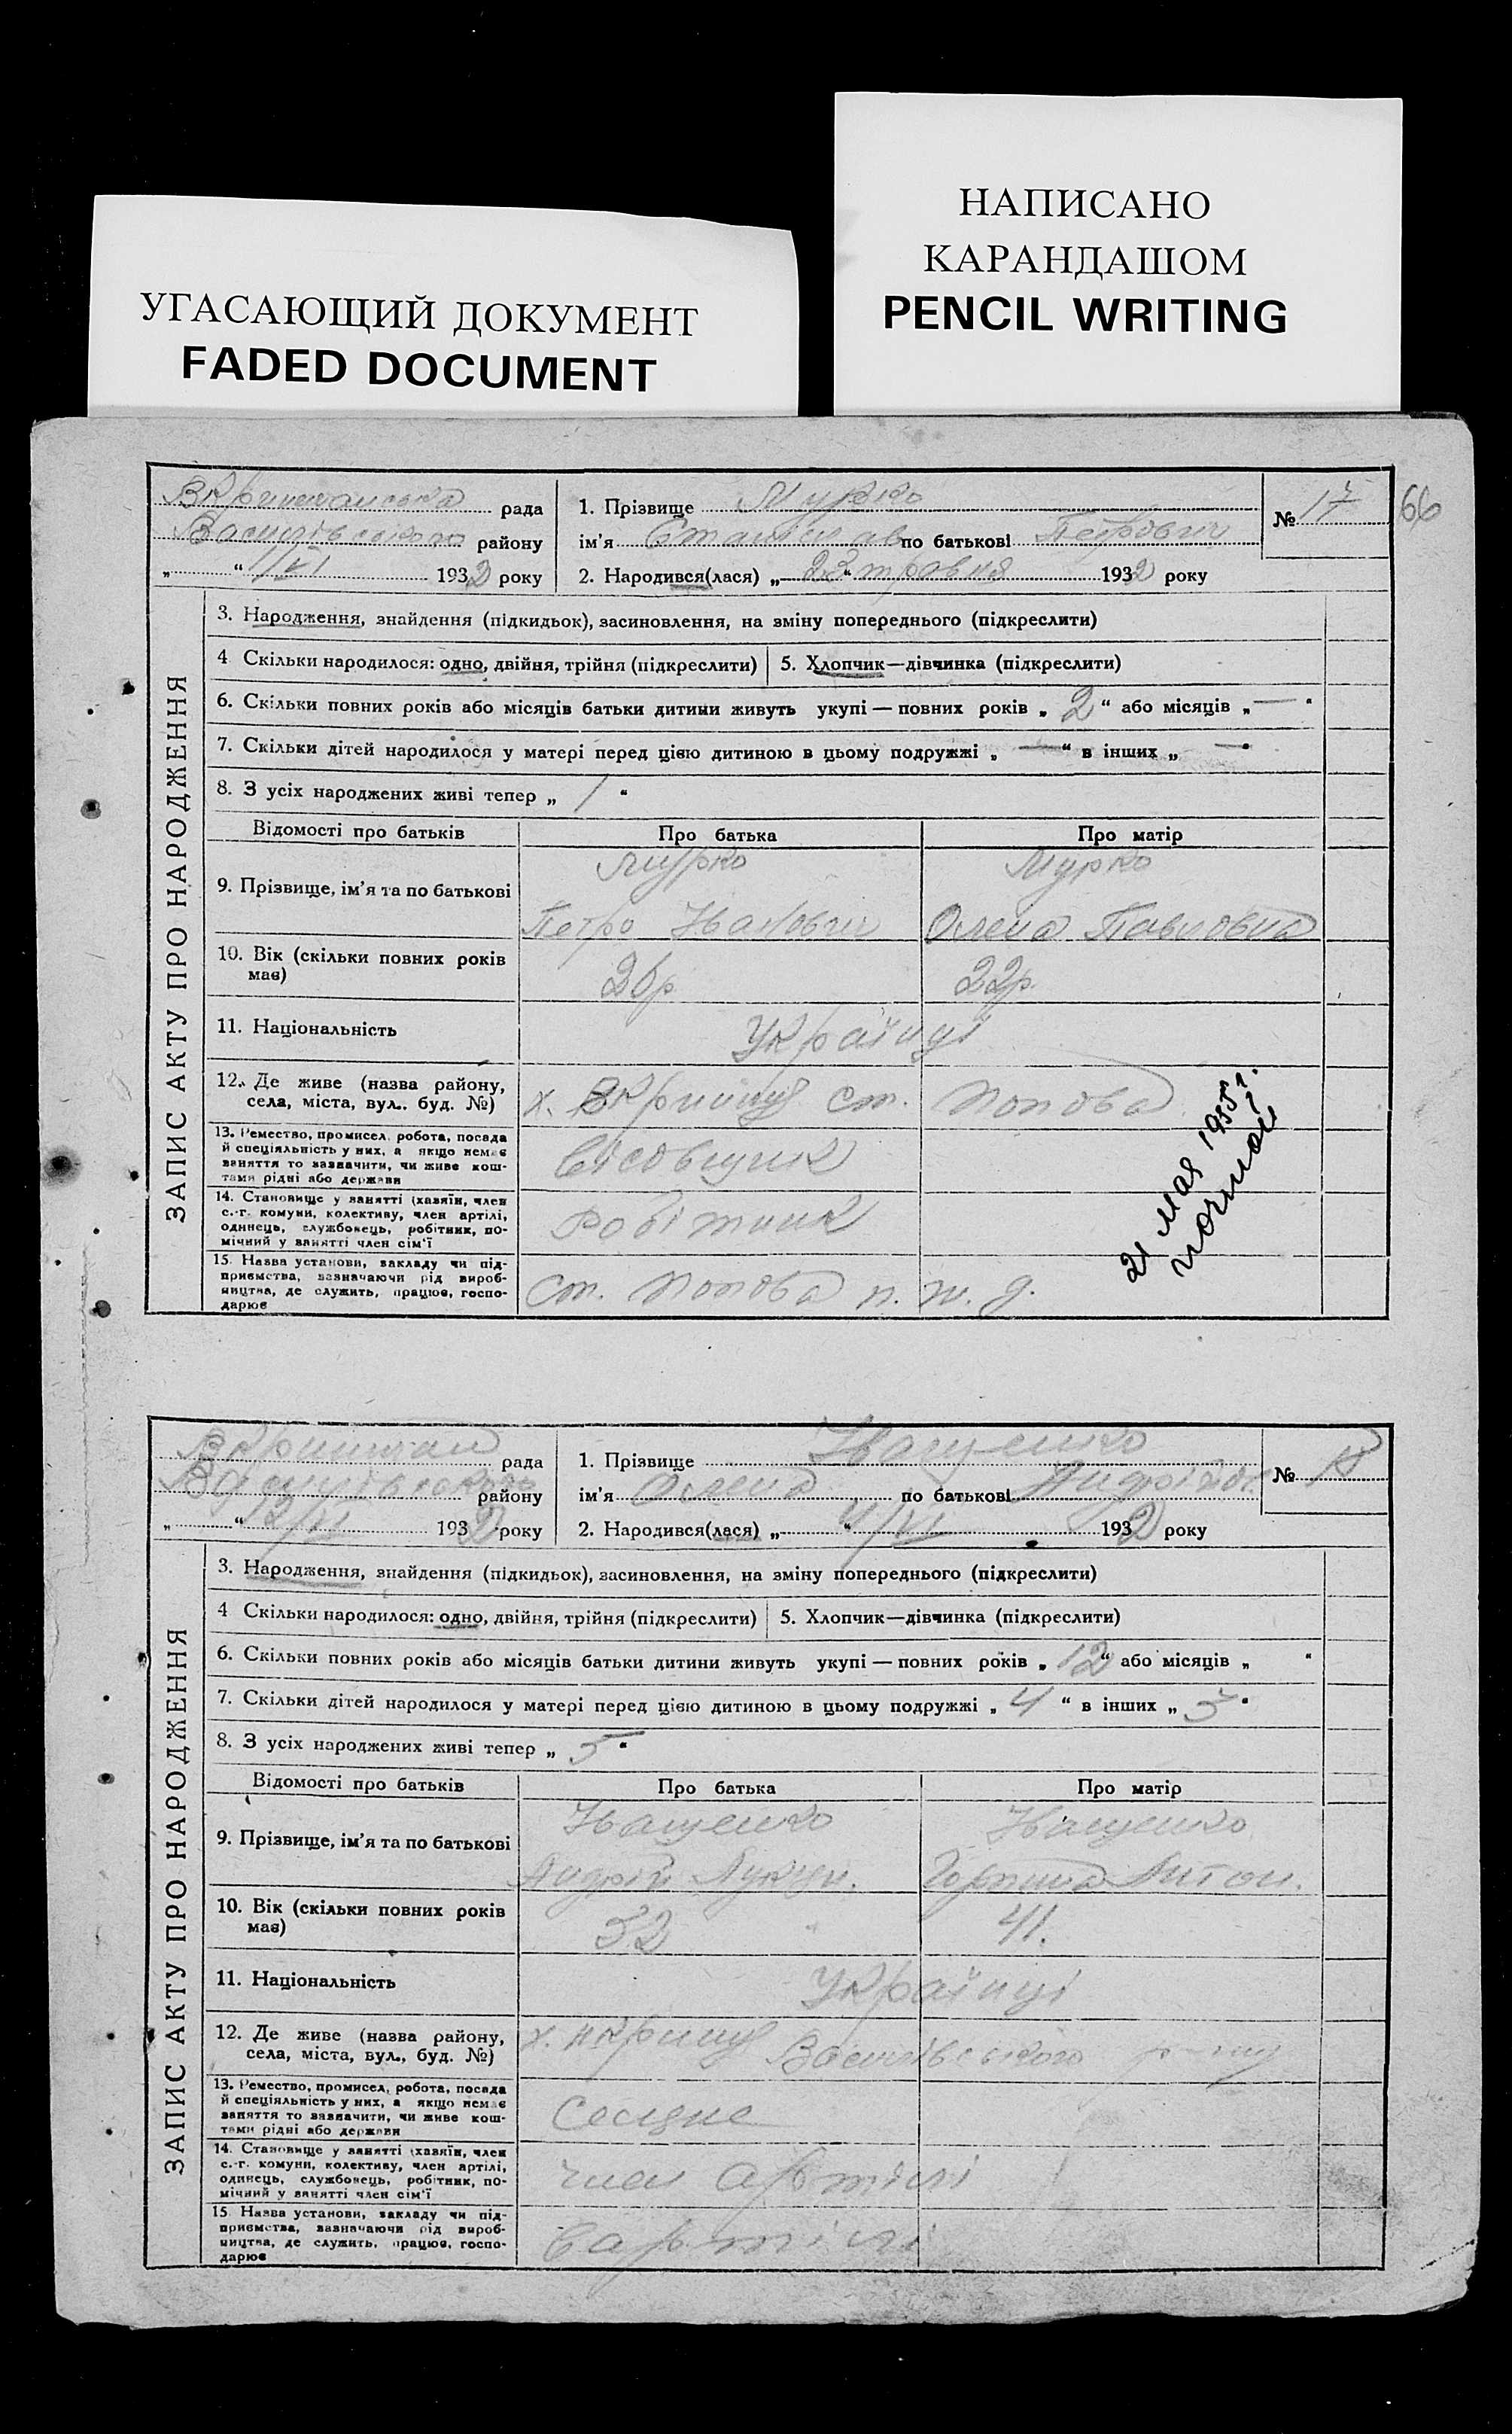 НАПИСАНО
КАРАНДАШОМ
PENCIL WRITING
УГАСАЮЩИЙ ДОКУМЕНТ
FADED DOCUMENT
66
ЗАПИС АКТУ ПРО НАРОДЖЕННЯ
рада
Василівського району
„ “ 1/VI 1932 року
1. Прізвище Мурко
ім'я Станіслав по батькові Петрович
2. Народився(лася) „ 23 “ травня 1932 року
№ 17
3. Народження, знайдення (підкидьок), засиновлення, на зміну попереднього (підкреслити)
4 Скільки народилося: одно, двійня, трійня (підкреслити) 5. Хлопчик—дівчинка (підкреслити)
6. Скільки повних років або місяців батьки дитини живуть укупі — повних років „ 2 “ або місяців „ — “
7. Скільки дітей народилося у матері перед цією дитиною в цьому подружжі „ — “ в інших „ — “
8. З усіх народжених живі тепер „ 1 “
Відомості про батьків Про батька Про матір
9. Прізвище, ім'я та по батькові
Мурко Мурко
Петро Іванович Олена Павловна
10. Вік (скільки повних років має) 26р 22р
11. Національність Українці
12. Де живе (назва району, села, міста, вул. буд. №) х. ВКриниця ст. Попова
13. Ремество, промисел, робота, посада й спеціяльність у них, а якщо немає заняття то зазначити, чи живе коштами рідні або держави
Вісовщик
14. Становище у занятті (хазяїн, член с.-г. комуни, колективу, член артілі, одинець, службовець, робітник, помічний у занятті член сім'ї
Робітник
15. Назва установи, закладу чи підприємства, зазначаючи рід виробництва, де служить, працює, господарює
ст. Попова п. ж. д.
21 мая 1955 г.
ЗАПИС АКТУ ПРО НАРОДЖЕННЯ
рада
Василівського району
„ “ 12/VI 1932 року
1. Прізвище Іващенко
ім'я Олена по батькові
2. Народився(лася) „ “ 4/VI 1932 року
№ 18
3. Народження, знайдення (підкидьок), засиновлення, на зміну попереднього (підкреслити)
4 Скільки народилося: одно, двійня, трійня (підкреслити) 5. Хлопчик—дівчинка (підкреслити)
6. Скільки повних років або місяців батьки дитини живуть укупі — повних років „ 12 “ або місяців „ “
7. Скільки дітей народилося у матері перед цією дитиною в цьому подружжі „ 4 “ в інших „ 5 “
8. З усіх народжених живі тепер „ 5 “
Відомості про батьків Про батька Про матір
9. Прізвище, ім'я та по батькові
Іващенко Іващенко
Андрій Горпина Антон.
10. Вік (скільки повних років має) 52 41.
11. Національність Українці
12. Де живе (назва району, села, міста, вул., буд. №) х. Василівського
13. Ремество, промисел, робота, посада й спеціяльність у них, а якщо немає заняття то зазначити, чи живе коштами рідні або держави
14. Становище у занятті (хазяїн, член с.-г. комуни, колективу, член артілі, одинець, службовець, робітник, помічний у занятті член сім'ї
член артілі
15 Назва установи, закладу чи підприємства, зазначаючи рід виробництва, де служить, працює, господарює
В артілі